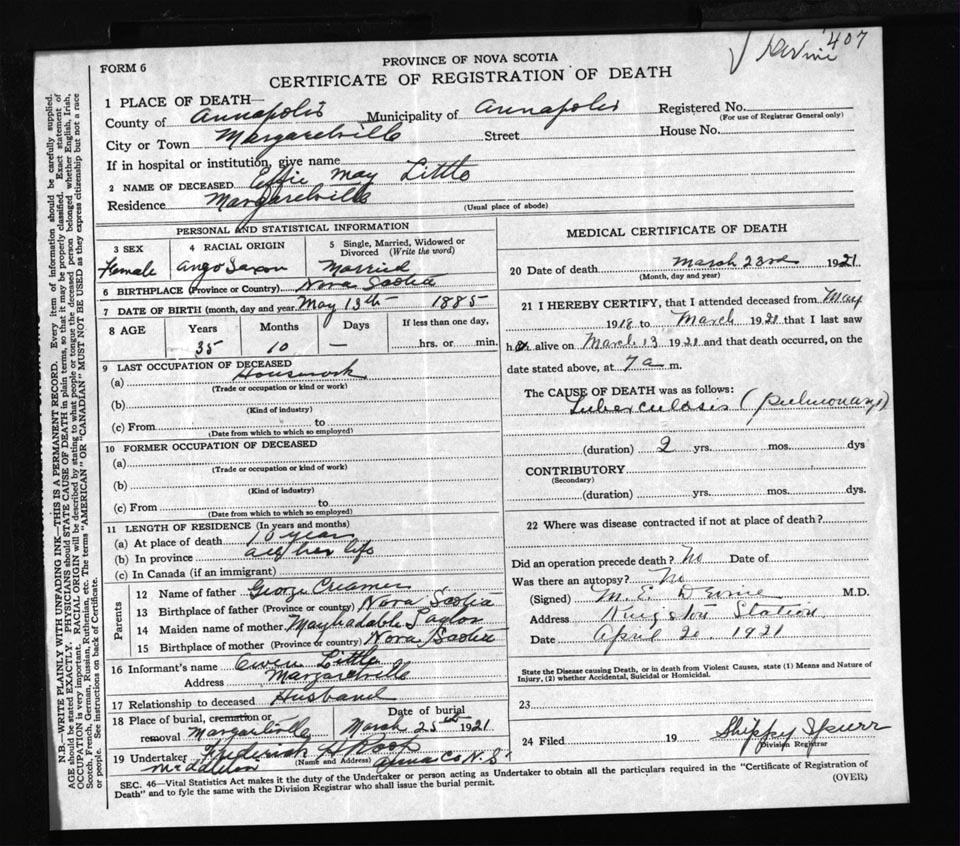 407
FORM 6
PROVINCE OF NOVA SCOTIA
CERTIFICATE OF REGISTRATION OF DEATH
1 PLACE OF DEATH—
County of Annapolis Municipality of Annapolis Registered No.
(For use of Registrar General only)
City or Town Margaretville Street House No.
If in hospital or institution, give name
2 NAME OF DECEASED Effie May Little
Residence Margaretville
(Usual place of abode)
PERSONAL AND STATISTICAL INFORMATION
3 SEX 4 RACIAL ORIGIN 5 Single, Married, Widowed or
Divorced (Write the word)
Female Ango Saxon Married
6 BIRTHPLACE (Province or Country) Nova Scotia
7 DATE OF BIRTH (month, day and year) May 13th 1885
8 AGE Years Months Days If less than one day,
35 10 — hrs. or min.
9 LAST OCCUPATION OF DECEASED
(a) Housework
(Trade or occupation or kind or work)
(b)
(Kind of industry)
(c) From to
(Date from which to which so employed)
10 FORMER OCCUPATION OF DECEASED
(a)
(Trade or occupation or kind of work)
(b)
(Kind of industry)
(c) From to
(Date from which to which so employed)
11 LENGTH OF RESIDENCE (In years and months)
(a) At place of death 10 years
(b) In province all her life
(c) In Canada (if an immigrant)
Parents
12 Name of father George Creamer
13 Birthplace of father (Province or country) Nova Scotia
14 Maiden name of mother Taylor
15 Birthplace of mother (Province or country) Nova Scotia
16 Informant's name Owen Little
Address Margaretville
17 Relationship to deceased Husband
18 Place of burial, cremation or Date of burial
removal Margaretville March 25th 1921
19 Undertaker Frederick H
(Name and Address)
Middleton Anna Co N.S.
MEDICAL CERTIFICATE OF DEATH
20 Date of death March 23rd 1921
(Month, day and year)
21 I HEREBY CERTIFY, that I attended deceased from May
1918 to March 1921 that I last saw
her alive on March 13 1921 and that death occurred, on the
date stated above, at 7 a m.
The CAUSE OF DEATH was as follows:
Tuberculosis (pulmonary)
(duration) 2 yrs. mos. dys
CONTRIBUTORY
(Secondary)
(duration) yrs. mos. dys.
22 Where was disease contracted if not at place of death?
Did an operation precede death? No Date of
Was there an autopsy? No
(Signed) M. E. M.D.
Address Kingston Station
Date April 20 1921
State the Disease causing Death, or in death from Violent Causes, state (1) Means and Nature of
Injury, (2) whether Accidental, Suicidal or Homicidal.
23
24 Filed 19 Shippy Spurr
Division Registrar
SEC. 46—Vital Statistics Act makes it the duty of the Undertaker or person acting as Undertaker to obtain all the particulars required in the "Certificate of Registration of
Death" and to fyle the same with the Division Registrar who shall issue the burial permit.
(OVER)
N.B.—WRITE PLAINLY WITH UNFADING INK—THIS IS A PERMANENT RECORD. Every item of information should be carefully supplied.
AGE should be stated EXACTLY. PHYSICIANS should STATE CAUSE OF DEATH in plain terms, so that it may be properly classified. Exact statement of
OCCUPATION is very important. RACIAL ORIGIN will be described by stating to what people or tongue the deceased person belonged whether English, Irish,
Scotch, French, German, Russian, Ruthenian, etc. The terms "AMERICAN" or "CANADIAN" MUST NOT BE USED as they express citizenship but not a race
or people. See instructions on back of Certificate.